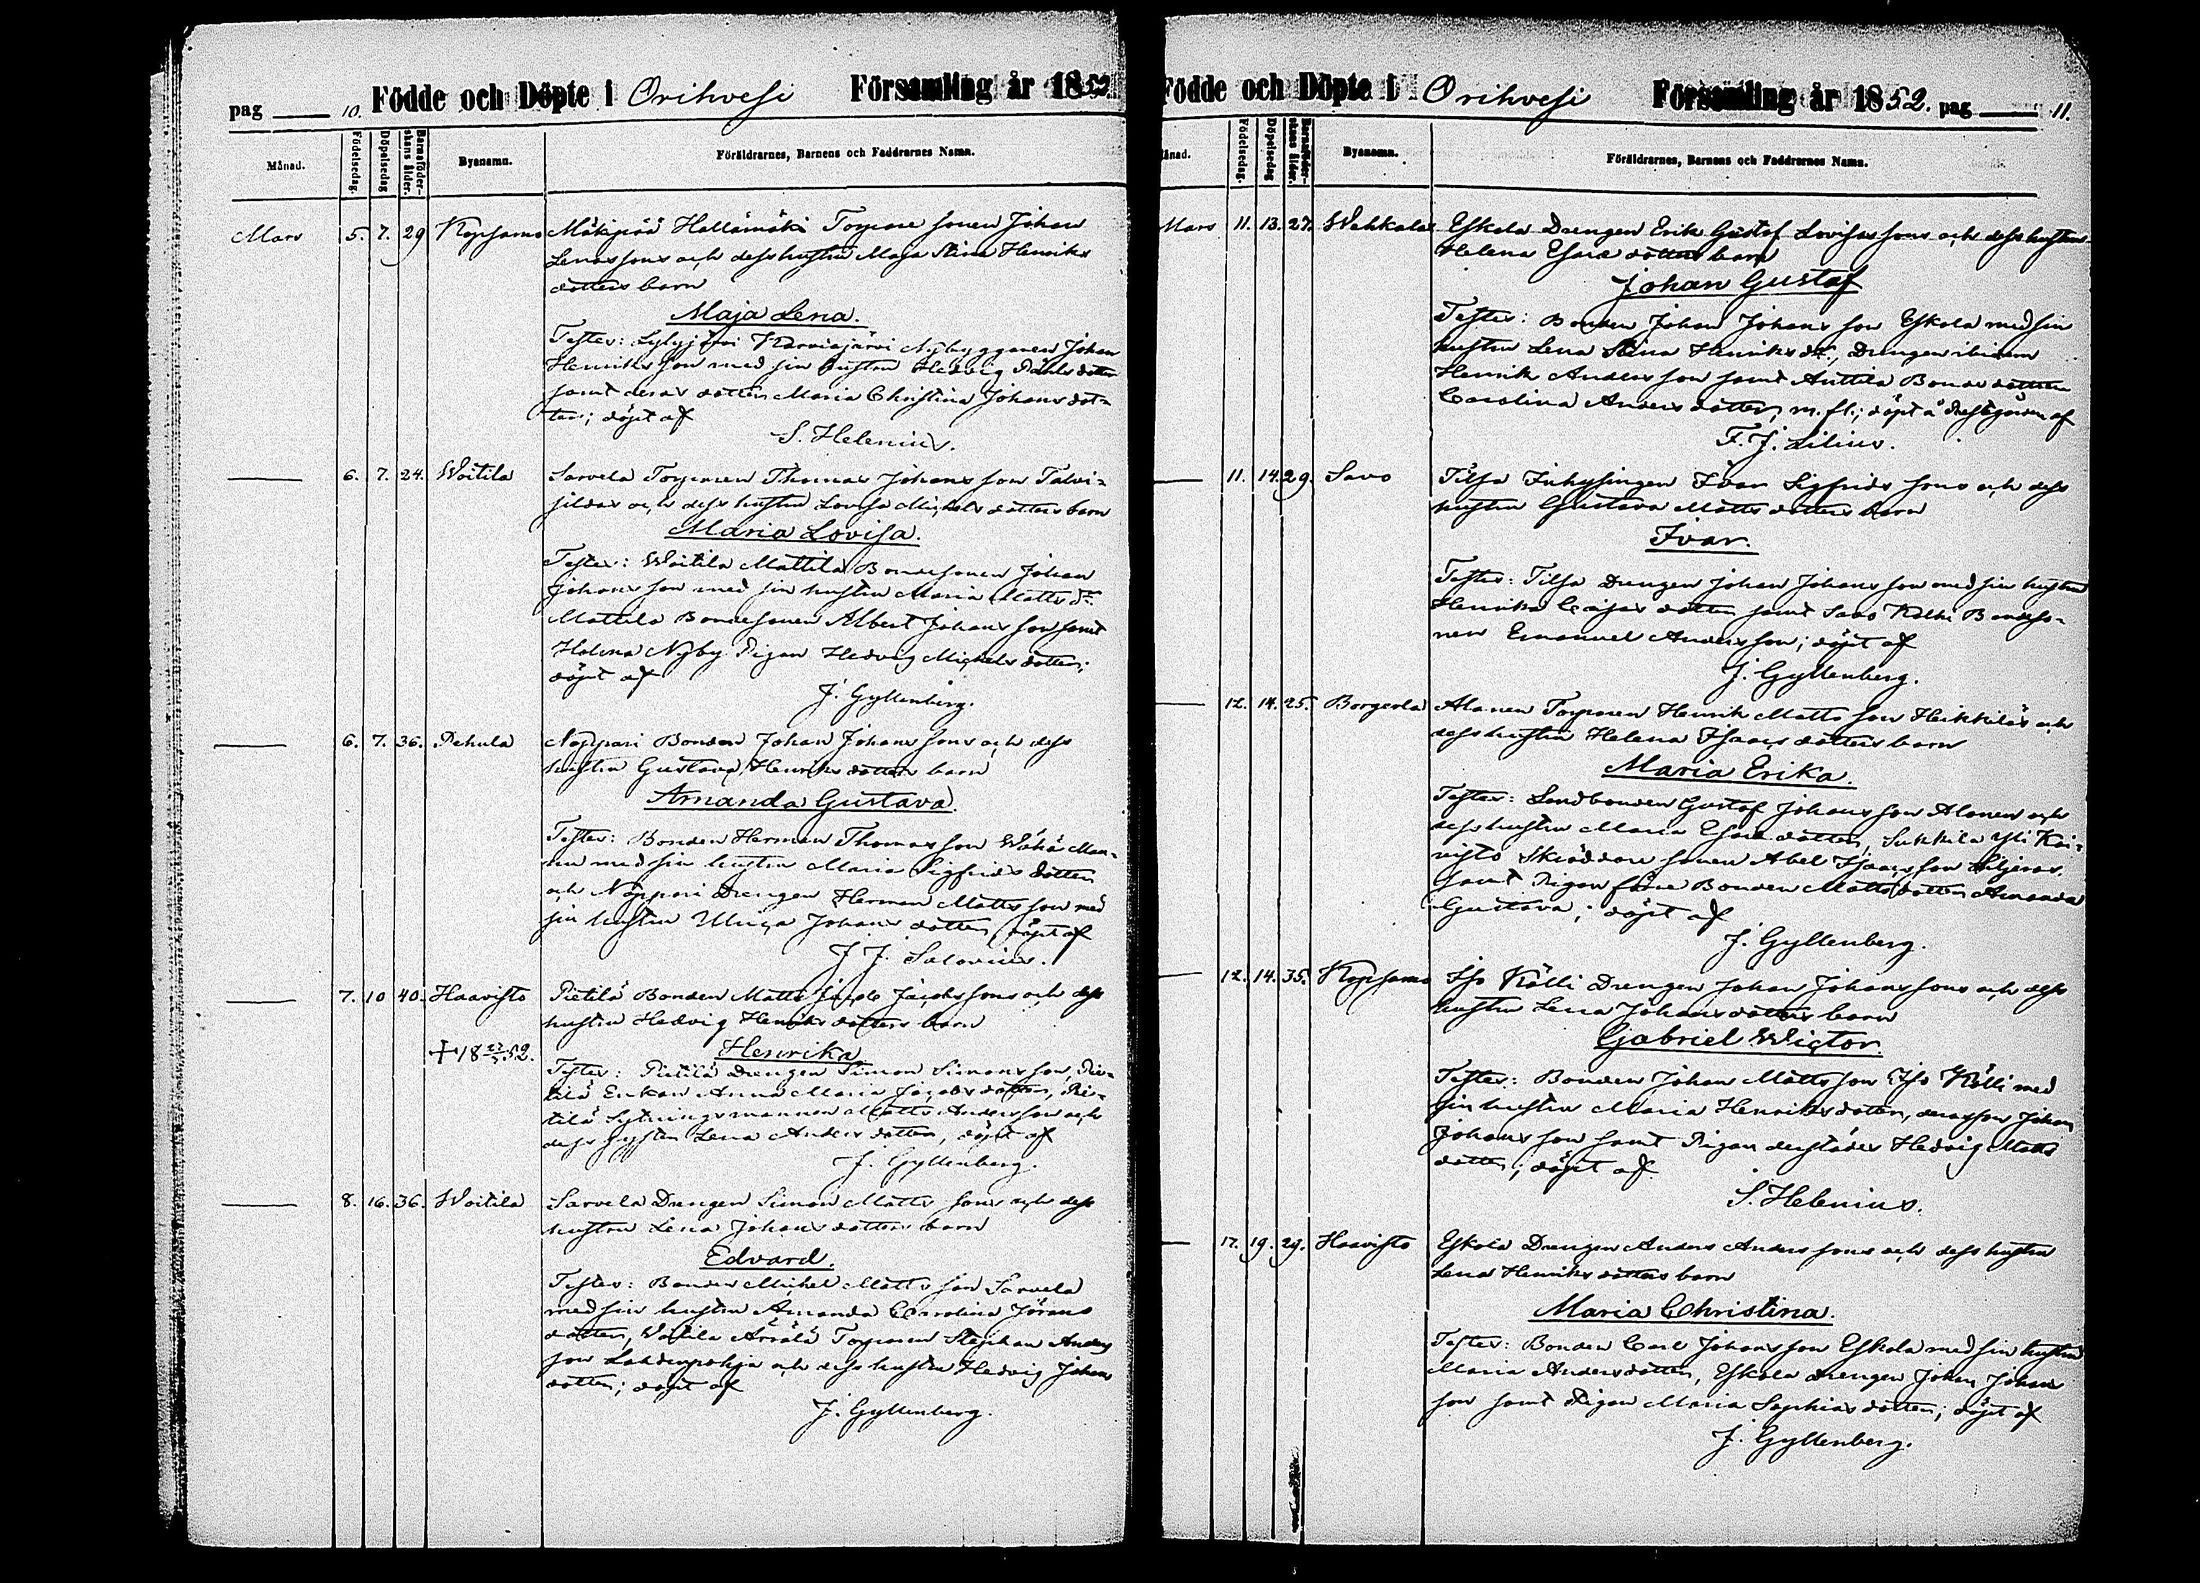 pag 10. Födde och Döpte i Orihvesi Församling år 1852
Månad. Födelsedag. Döpelsedag Barnaföderskans ålder. Bynamn. Föräldrarnes, Barnens och Faddrarnes Namn.
Mars 5. 7. 29 Kopsamo Mäkipää Hallamäki Torpare sonen Johan
Lenas sons och dess hustru Maja Stina Henriks
dotters barn
Maja Lena.
Testes: Sylyjärvi Karviajärvi Nybyggaren Johan
Henriks son med sin hustru Hedvig Påhls dotter
samt deras dotter Maria Christina Johans dot-
ter; döpt af
S. Helenius.
6. 7. 24. Woitila Sarvela Torparen Thomas Johans son Talvi-
sildas och dess hustru Lovisa Michels dotters barn
Maria Lovisa.
Testes: Woitila Mattila Bondesonen Johan
Johans son med sin hustru Maria Matts dr.
Mattila Bondesonen Albert Johans son samt
Halina Nyby Pigan Hedvig Michels dotter;
döpt af
J. Gyllenberg.
6. 7. 36. Pehula Näppari Bonden Johan Johans sons och dess
hustru Gustava Henriks dotters barn
Amanda Gustava.
Testes: Bonden Herman Thomas son Wähä Man-
nu med sin hustru Maria Sigfrids dotter
och Näppari Drengen Herman Matts son med
sin hustru Ulrica Johans dotter, döpt af
J. J. Salovius.
7. 10 40. Haavisto Pietilä Bonden Matts Jacob Jacobs sons och dess
hustru Hedvig Henriks dotters barn
† 18 52. Henrika
Testes: Pietilä Drengen Simon Simons son, Pie-
tilä Enkan Anna Maria Jacobs dotter, Pie-
tilä Sytningsmannen Matts Anders son och
dess syster Lena Anders dotter, döpt af
J. Gyllenberg.
8. 16. 36. Woitila Sarvela Drengen Simon Matts sons och dess
hustru Lena Johans dotters barn
Edvard.
Testes: Bonden Michel Matts son Sarvela
med sin hustru Amanda Carolina Jörans
dotter, Woitila Ärrälä Torparen Stephan Anders
son Lahdenpohja och dess hustru Hedvig Johans
dotter; döpt af
J. Gyllenberg.
Födde och Döpte i Orihvesi Församling år 1852. pag 11.
ånad. Födelsedag. Döpelsedag Barnaföderskans ålder. Bynamn. Föräldrarnes, Barnens och Faddrarnes Namn.
Mars 11. 13. 27. Wehkalax Eskola Drengen Erik Gustaf Lovisas sons och dess hustrus
Helena Esaie dotters barn
Johan Gustaf
Testes: Bonden Johan Johans son Eskola med sin
hustru Lena Stina Henriks dr., Drengen ibidem
Henrik Anders son samt Anttila Bonde dottren
Carolina Anders dotter, m. fl.; döpt å Prestgården af
F. J. Lilius.
11. 14. 29. Savo Tilsa Inhysingen Ivar Sigfrids sons och dess
hustru Gustava Matts dotters barn
Ivar.
Testes: Tilsa Drengen Johan Johans son med sin hustru
Henrika Cajsas dotter samt Savo Kolki Bondeso-
nen Emanuel Anders son; döpt af
J. Gyllenberg.
12. 14. 25. Borgerla Alanen Torparen Henrik Matts son Heikkiläs och
dess hustru Helena Isaacs dotters barn
Maria Erika.
Testes: Landbonden Gustaf Johans son Alanen och
dess hustru Maria Esaie dotter, Sukkila Yli Koi-
visto Skräddare sonen Abel Isaacs son
samt Pigan före Bonden Matts dotter Amanda
Gustava; döpt af
J. Gyllenberg.
12. 14. 35. Kopsamo Iso Kölli Drengen Johan Johans sons och dess
hustru Lena Johans dotters barn
Gabriel Wictor.
Testes: Bonden Johan Matts son Iso Kölli med
sin hustru Maria Henriks dotter, deras son Johan
Johans son samt Pigan derstädes Hedvig Matts
dotter; döpt af
S. Helenius.
17. 19. 29. Haavisto Eskola Drengen Anders Anders sons och dess hustru
Lena Henriks dotters barn
Maria Christina.
Testes: Bonden Carl Johans son Eskola med sin hustru
Maria Anders dotter, Eskola Drengen Johan Johans
son samt Pigan Maria Sophias dotter; döpt af
J. Gyllenberg.